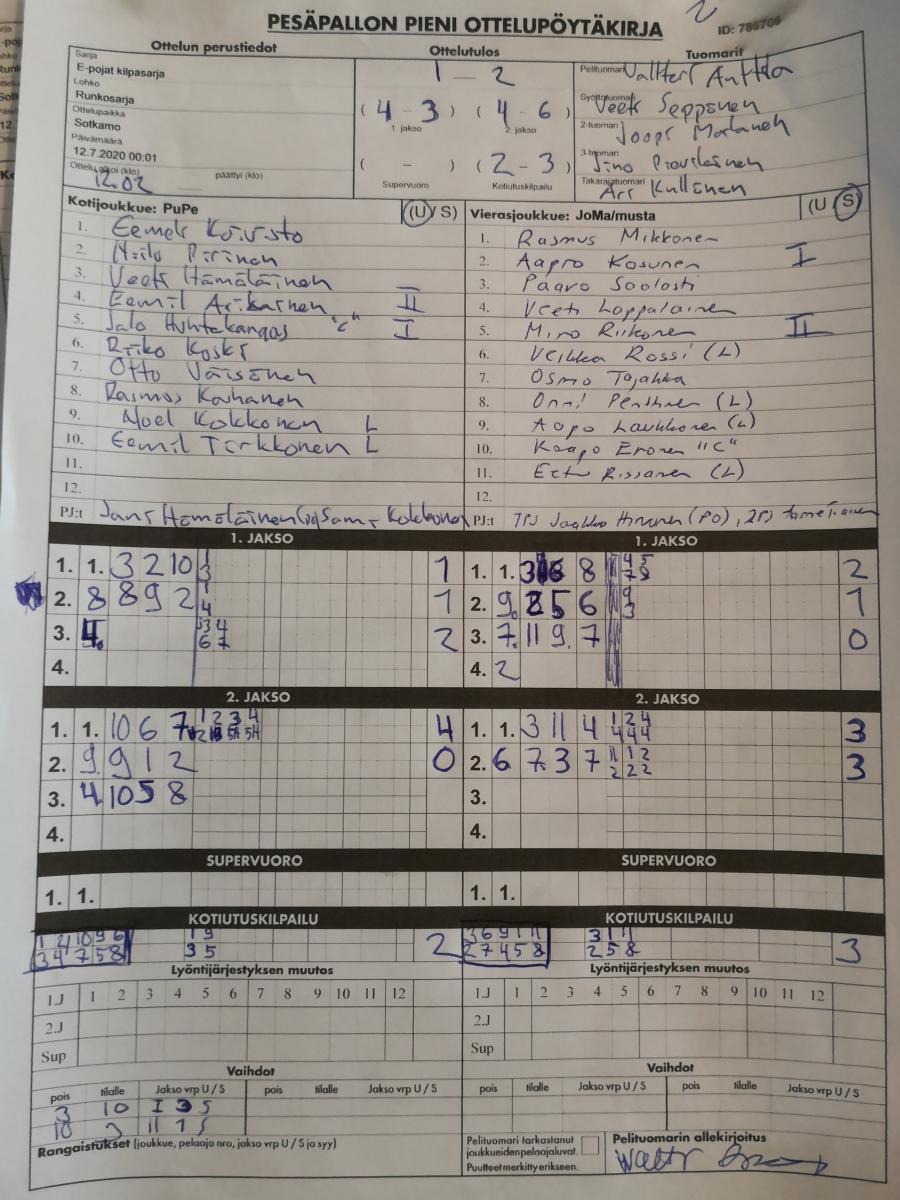 PESÄPALLON PIENI OTTELUPÖYTÄKIRJA
ID: 788706
Ottelun perustiedot
Ottelutulos
Tuomarit
Sarja
E-pojat kilpasarja
Lohko
Runkosarja
Ottelupaikka
Sotkamo
Päivämäärä
12.7.2020 00:01
Ottelu alkoi (klo) 12.02 päättyi (klo)
1 - 2
( 4 - 3 ) ( 4 - 6 )
1. jakso 2. jakso
( - ) ( 2 - 3 )
Supervuoro Kotiutuskilpailu
Pelituomari Valtteri Anttila
Syöttötuomari Veeti Seppänen
2-tuomari
3-tuomari
Takarajatuomari Kullinen
Kotijoukkue: PuPe (U/ S)
1. Eemeli Koivisto
2. Niilo Piirinen
3. Veeti Hämäläinen
4. Eemil II
5. Salo Huhtakangas "C" I
6. Riiko Koski
7. Otto Väisänen
8. Rasmus Kauhanen
9. Noel Kokkonen L
10. Eemil Tirkkonen L
11.
12.
PJ:t Jani Hämäläinen Kokkonen
Vierasjoukkue: JoMa/musta (U / S)
1. Rasmus Mikkonen
2. Aapro Kosunen I
3. Paavo
4. Veeti Lappalainen
5. Miro Riikonen II
6. Veikka Rossi (L)
7. Osmo Tajakka
8. Onni (L)
9. Aapo Laukkanen (L)
10. Kaapo Eronen "C"
11. Eetu Rissanen (L)
12.
PJ:t Jaakko Hirvonen (PO), 2PJ
1. JAKSO
1. 1. 3 2 10 1 3 1
2. 8 8 9 2 1 4 1
3. 4. 3 4 6 7 2
4.
1. JAKSO
1. 1. 3 8 4 5 7 8 2
2. 9. 5 6 9 3 1
3. 7. 11 9. 7 0
4. 2
2. JAKSO
1. 1. 10 6 7 1 2 3 4 4
2. 9. 9 1 2 0
3. 4. 10 5 8
4.
2. JAKSO
1. 1. 3 11 4 1 2 4 4 4 4 3
2. 6 7. 3 7 11 1 2 2 2 2 3
3.
4.
SUPERVUORO
1. 1.
SUPERVUORO
1. 1.
KOTIUTUSKILPAILU
1 2 10 9 6 1 9
3 4 7 5 8 3 5 2
KOTIUTUSKILPAILU
3 6 9 1 11 3 1 11
2 7 4 5 8 2 5 8 3
Lyöntijärjestyksen muutos
1.J 1 2 3 4 5 6 7 8 9 10 11 12
2.J
Sup
Lyöntijärjestyksen muutos
1.J 1 2 3 4 5 6 7 8 9 10 11 12
2.J
Sup
Vaihdot
pois tilalle Jakso vrp U / S pois tilalle Jakso vrp U / S
3 10 I 3 S
10 3 II 1 S
Vaihdot
pois tilalle Jakso vrp U / S pois tilalle Jakso vrp U / S
Rangaistukset (joukkue, pelaaja nro, jakso vrp U / S ja syy)
Pelituomari tarkastanut
joukkueiden pelaajaluvat.
Puutteet merkitty erikseen.
Pelituomarin allekirjoitus